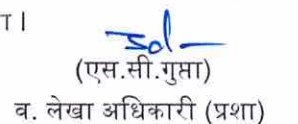 T।
Sd/-
(एस.सी.गुप्ता)
व. लेखा अधिकारी (प्रशा)